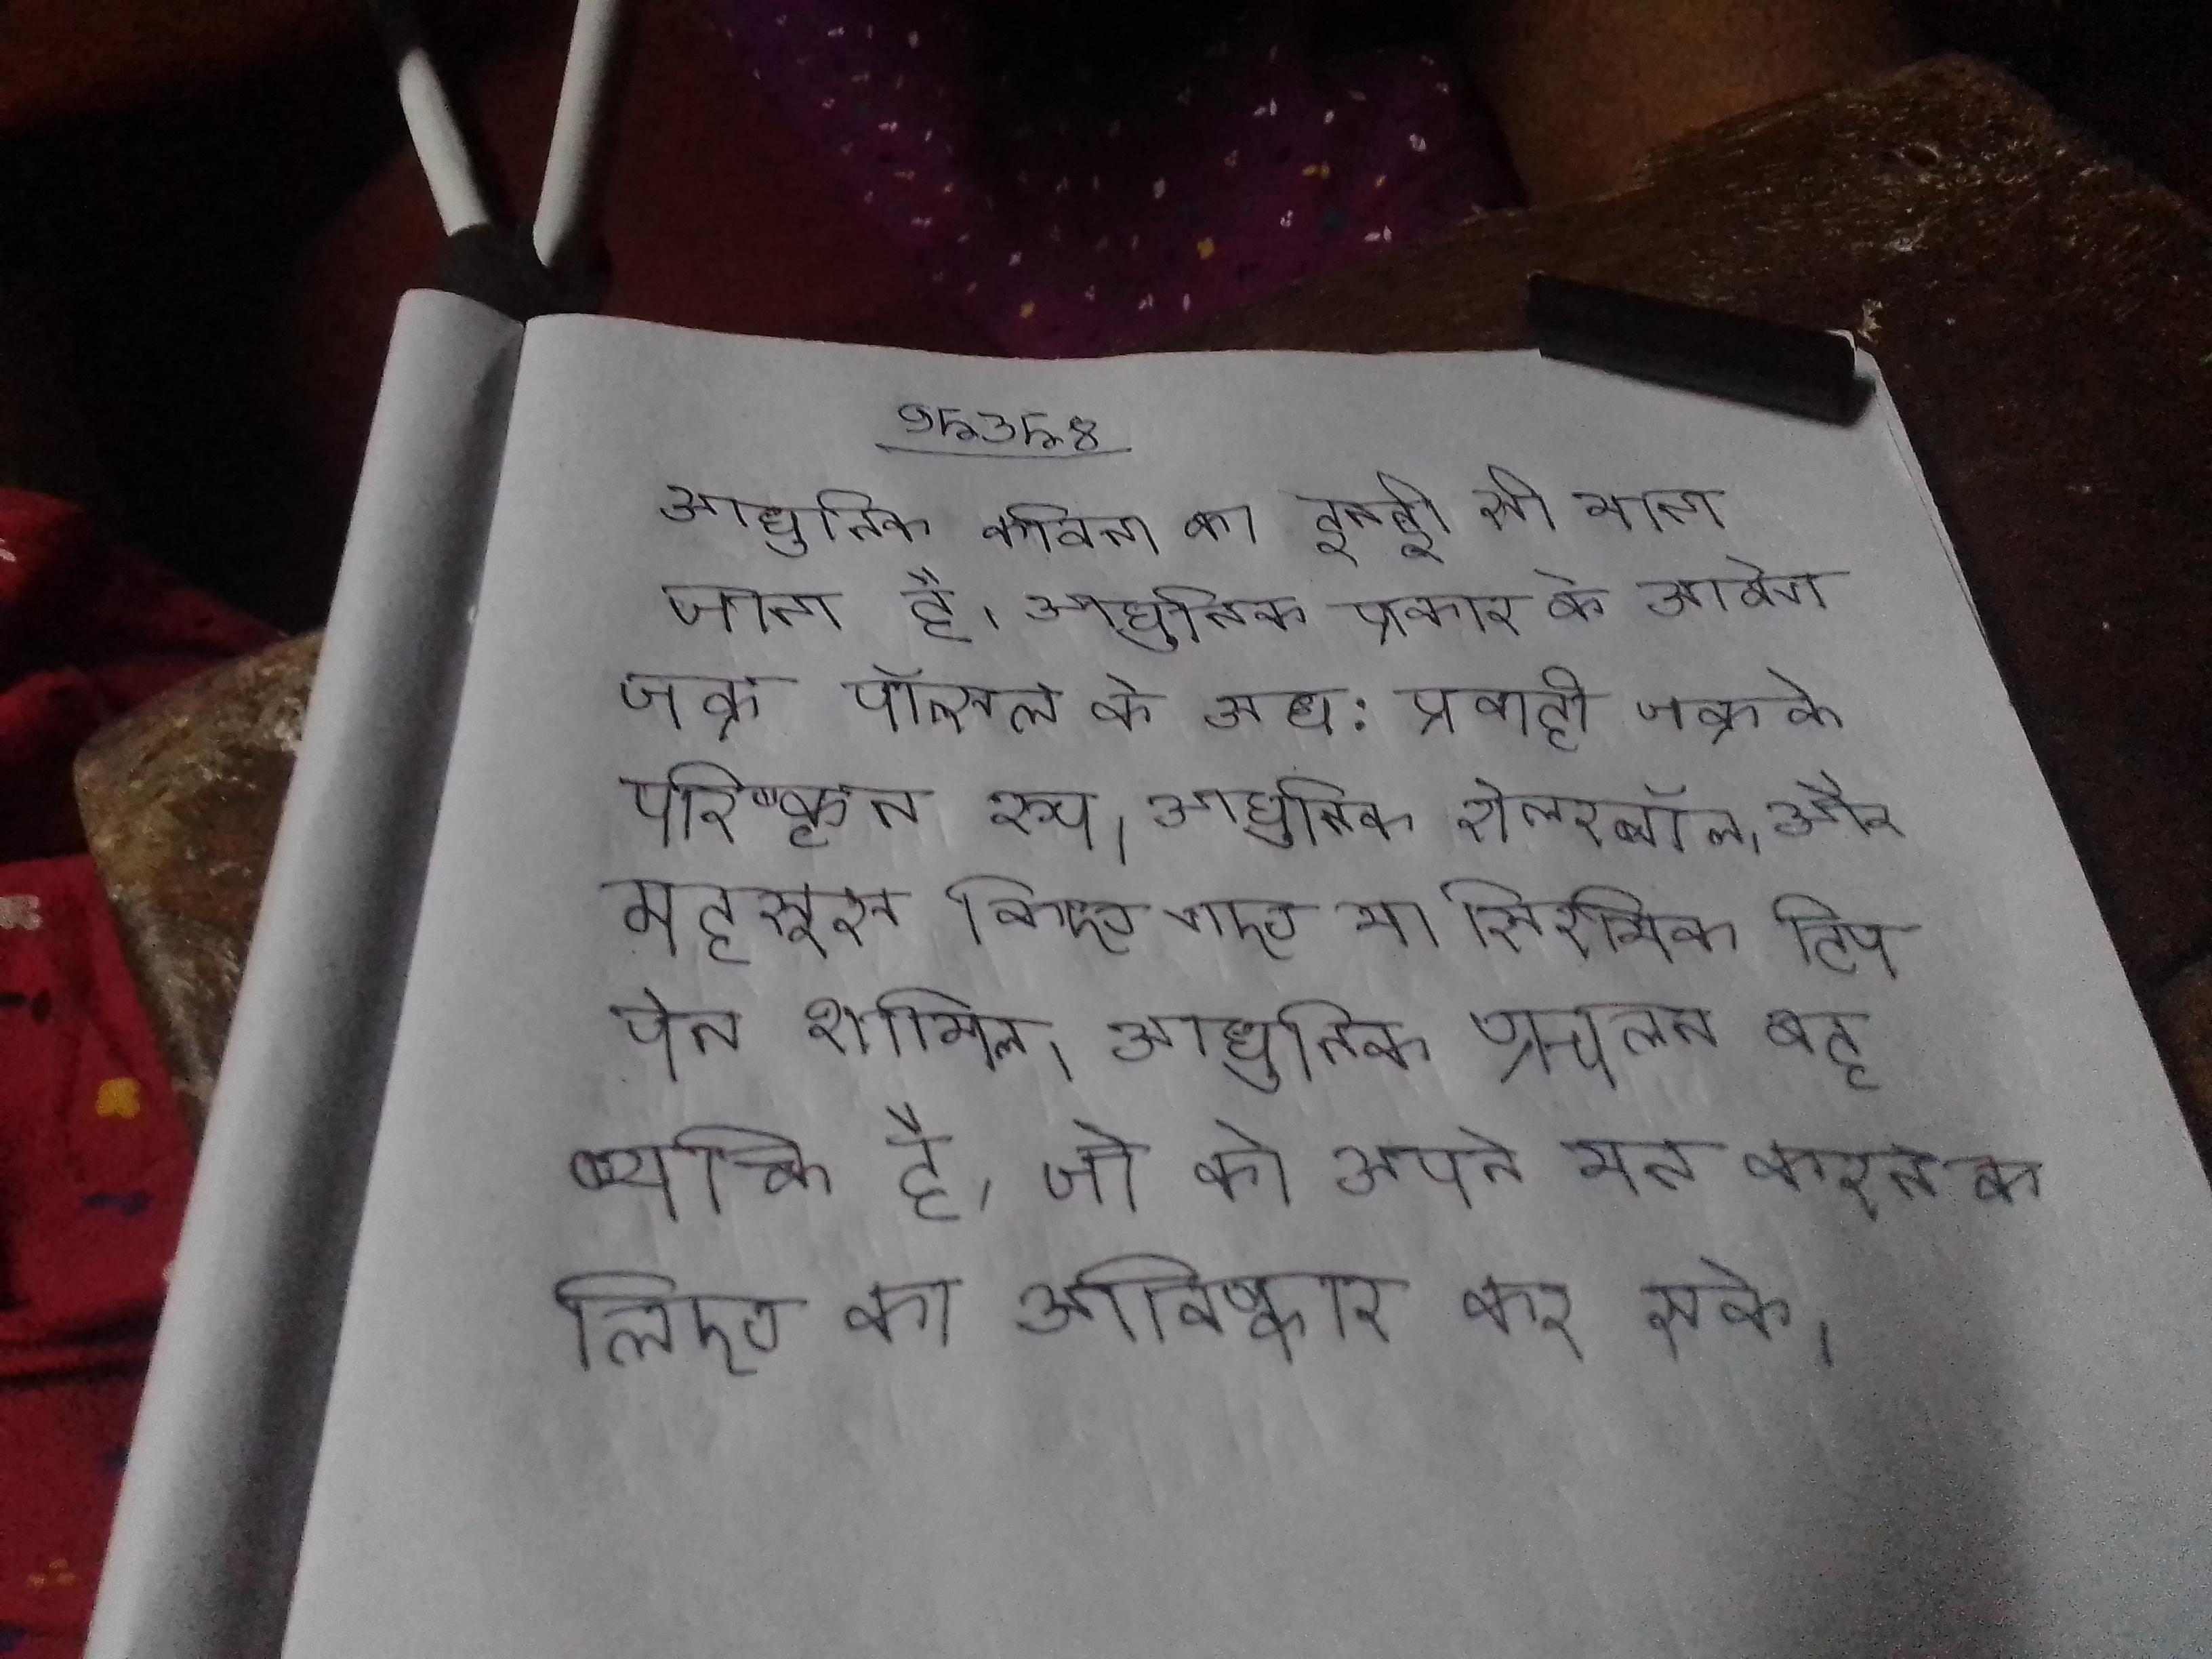 ९५३५४
आधुनिक कविता का इन्ही सी माना
जाता है, आधुनिक प्रकार के आवेग
जक्र पॉस्चल के अध: प्रवाही जक्र के
परिष्कृत रूप, आधुनिक रोलरबॉल, और
महसूस किए गए या सिरेमिक टिप
पेन शामिल, आधुनिक प्रचलन वह
व्यक्ति है, जो को अपने मन करने क
लिए का आविष्कार कर सके,